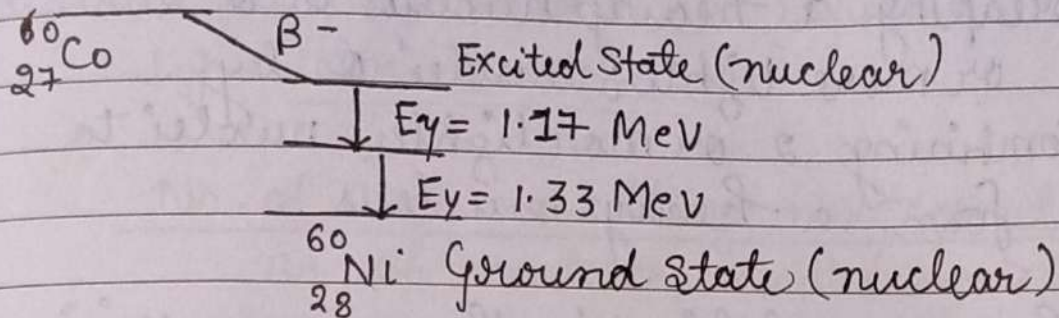 ⁶⁰₂₇Co β - Excited State (nuclear)
↓ Eγ = 1.17 MeV
↓ Eγ = 1.33 MeV
⁶⁰₂₈Ni Ground state (nuclear)